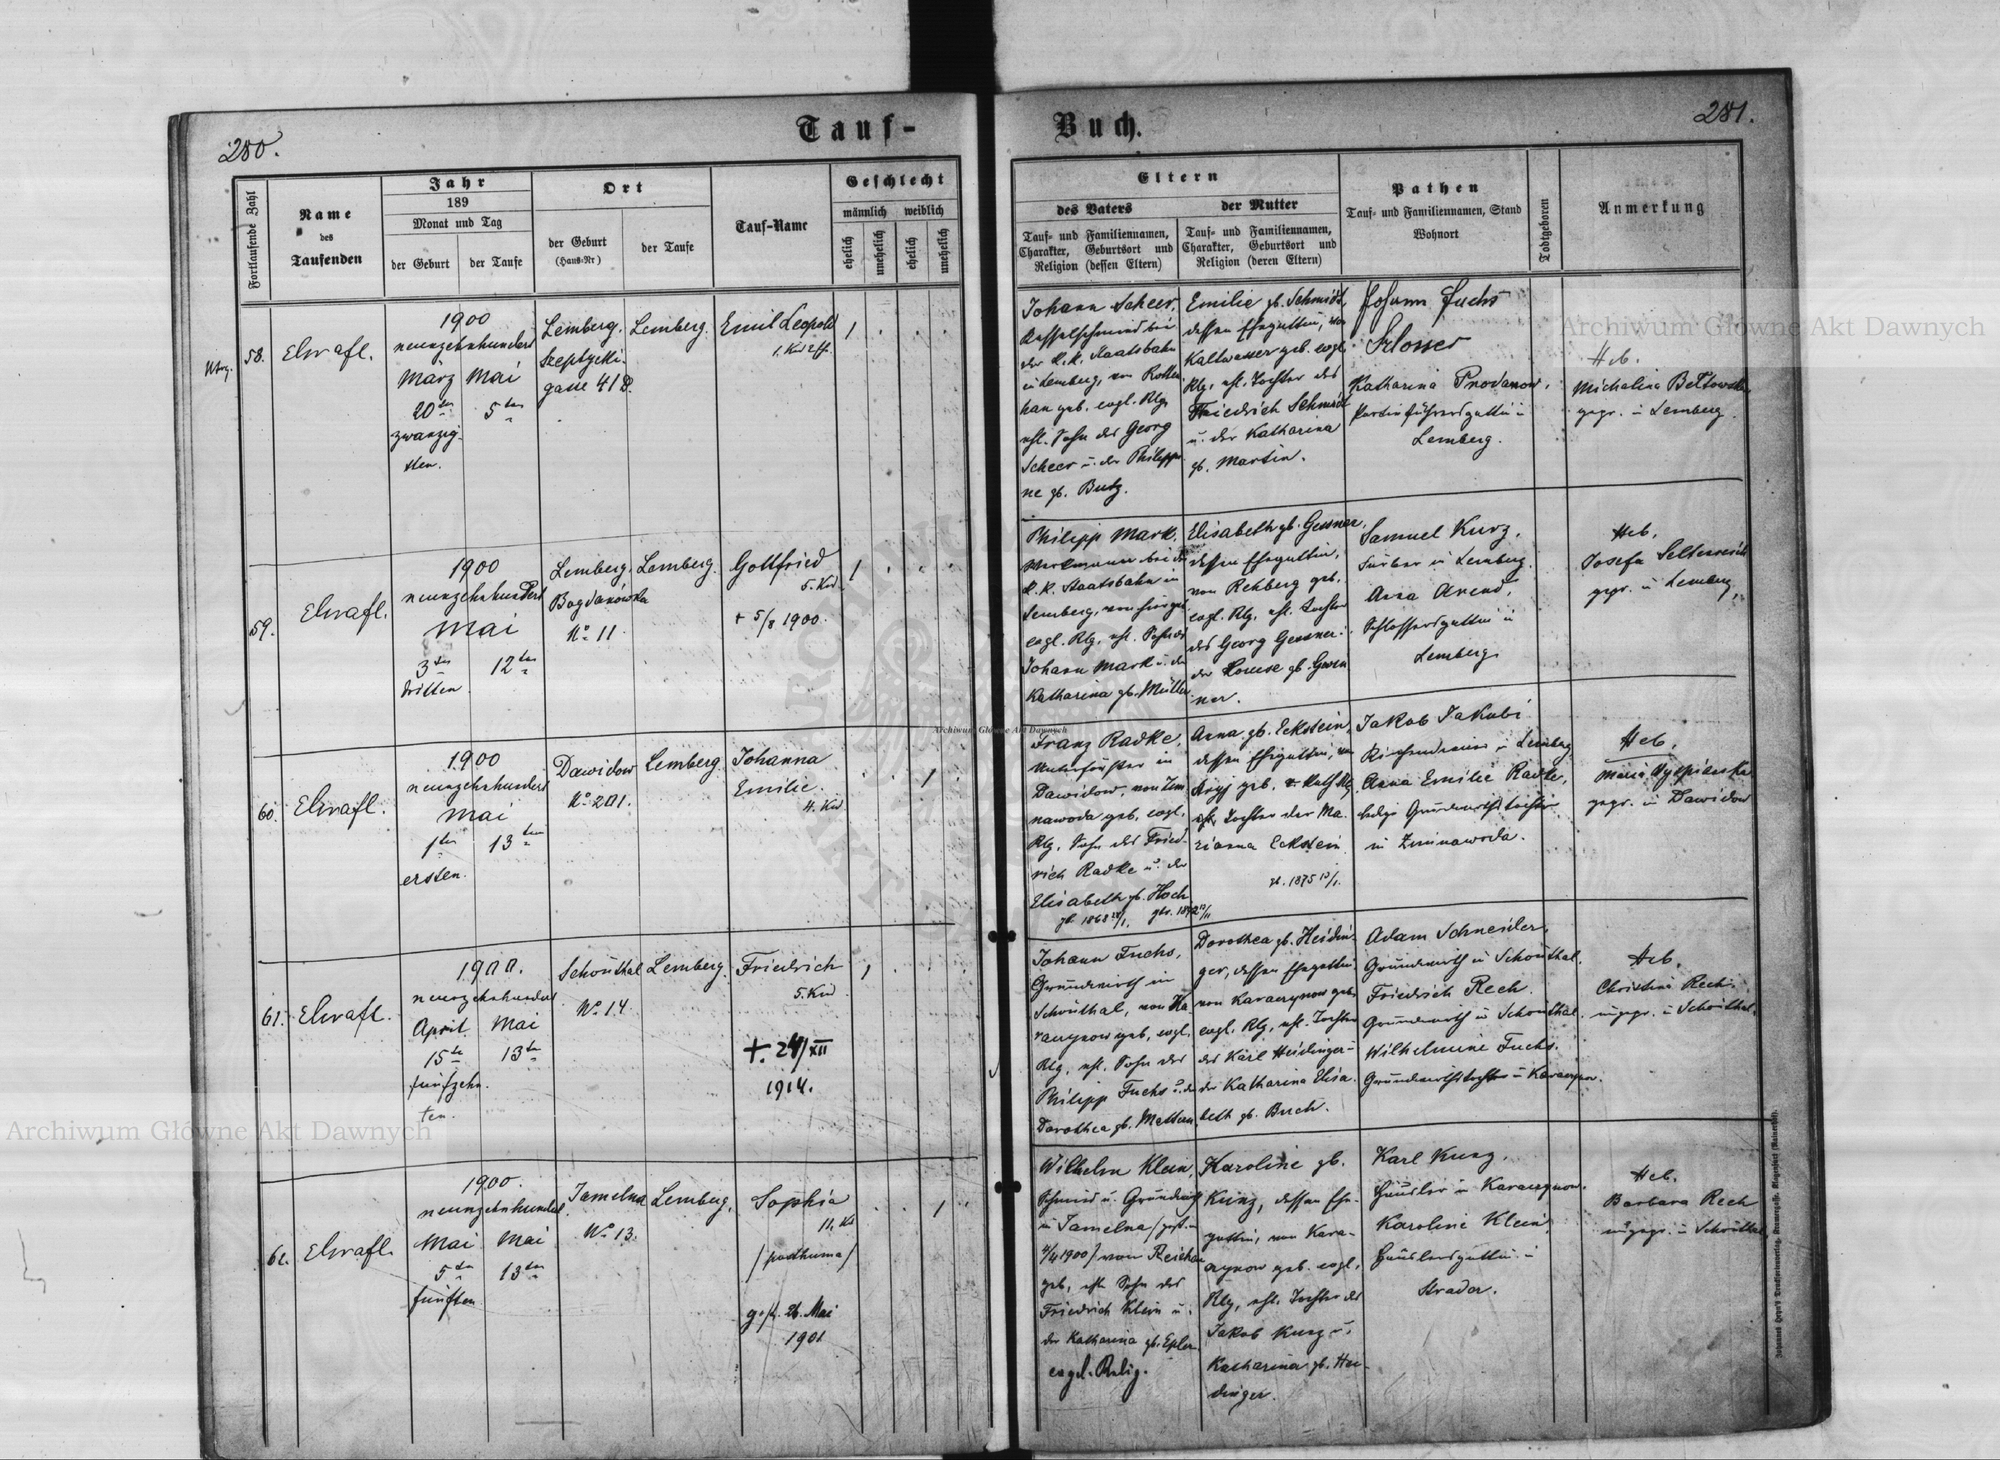 280.
Tauf-
Fortlaufende Zahl
Name
des
Taufenden
Jahr
189
Monat und Tag
der Geburt
der Taufe
Ort
der Geburt
(Haus-Nr)
der Taufe
Tauf-Name
Geschlecht
männlich
weiblich
ehelich
unehelich
ehelich
unehelich
58.
1900
neunzehnhundert
März Mai
20ten 5ten
zwanzig-
sten.
Lemberg.
Szeptycki-
gasse 41B.
Lemberg.
Emil Leopold
1
59.
1900
neunzehnhundert
Mai
3ten 12ten
dritten
Lemberg.
Bogdanówka
No 11.
Lemberg.
Gottfried
5. Kind
+ 5/8 1900.
1
60.
1900
neunzehnhundert
Mai
1ten 13ten
ersten.
Dawidow
No 201.
Lemberg
Johanna
Emilie.
4. Kind
1
61.
1900.
neunzehnhundert
April Mai
15te 13te
fünfzehn-
ten.
Schönthal
No 14.
Lemberg.
Friedrich
5. Kind
+. 24/XII
1914.
1
62.
1900.
neunzehnhundert
Mai Mai
5ten 13ten
fünften
Jamelna
No 13.
Lemberg.
Sophia
11. Kd
/posthuma/
gest. 26. Mai
1901
1
Buch.
281.
Eltern
des Vaters
der Mutter
Tauf- und Familiennamen,
Charakter, Geburtsort und
Religion (dessen Eltern)
Tauf- und Familiennamen,
Charakter, Geburtsort und
Religion (deren Eltern)
Pathen
Tauf- und Familiennamen, Stand
Wohnort
Todtgeboren
Anmerkung
Johann Scheer,
Kesselschmied bei
der k. k. Staatsbahn
in Lemberg, von Rotten-
han geb. evgl. Rlg.
ehl. Sohn des Georg
Scheer u. der Philippi-
ne gb. Butz.
Emilie gb. Schmidt,
dessen Ehegattin, von
Kaltwasser geb. evgl.
Rlg. ehl. Tochter des
Friedrich Schmidt
u. der Katharina
gb. Martin.
Johann Fuchs
Schlosser
Katharina Prodanow,
Lemberg.
Heb.
gepr. in Lemberg.
Philipp Mark,
Werkmann bei der
k. k. Staatsbahn in
Lemberg, von hier geb.
evgl. Rlg. ehl. Sohn des
Johann Mark u. der
Katharina gb. Müller
Elisabeth gb. Gessner,
dessen Ehegattin,
von Rehberg geb.
evgl. Rlg. ehl. Tochter
des Georg Gessner u.
der Louise gb. Gess-
ner.
Samuel Kurz,
Färber in Lemberg.
Anna Arend,
Schlossersgattin in
Lemberg.
Heb.
gepr. in Lemberg.
Franz Radke,
Unterförster in
Dawidow, von Zim-
nawoda geb. evgl.
Rlg. Sohn des Fried-
rich Radke u. der
Elisabeth gb. Hoch
Anna gb. Eckstein,
dessen Ehegattin, von
Stryj geb. r. kath. Rlg.
Tochter der Ma-
rianna Eckstein
Jakob Jakobi
Kirchendiener in Lemberg
Anna Emilie Radke,
ledige Grundwirthstochter
in Zimnawoda.
Heb.
gepr. in Dawidow
Johann Fuchs,
Grundwirth in
Schönthal, von Ka-
raczynow geb. evgl.
Rlg. ehl. Sohn des
Philipp Fuchs u. der
Dorothea gb.
Dorothea gb. Heidin-
ger, dessen Ehegattin
von Karaczynow geb.
evgl. Rlg. ehl. Tochter
des Karl Heidinger u.
der Katharina Elisa-
beth gb. Buch.
Adam Schneider,
Grundwirth in Schönthal.
Friedrich Rech
Grundwirth in Schönthal.
Wilhelmine Fuchs.
Grundwirthstochter in Karaczynow.
Heb.
Christine Rech
ungepr. in Schönthal.
Wilhelm Klein,
Schmied u. Grundwirth
in Jamelna /gest. in
geb. ehl. Sohn des
Friedrich Klein u.
der Katharina gb. Epler
evgl. Relig.
Karoline gb.
Kunz, dessen Ehe-
gattin, von Kara-
czynow geb. evgl.
Rlg. ehl. Tochter des
Jakob Kunz u.
Katharina gb. Hei-
dinger.
Karl Kunz,
Häusler in Karaczynow.
Karoline Klein
Häuslersgattin in
Stradar.
Heb.
Barbara Rech
ungepr. in Schönthal
Archiwum Główne Akt Dawnych
Archiwum Główne Akt Dawnych
Archiwum Główne Akt Dawnych